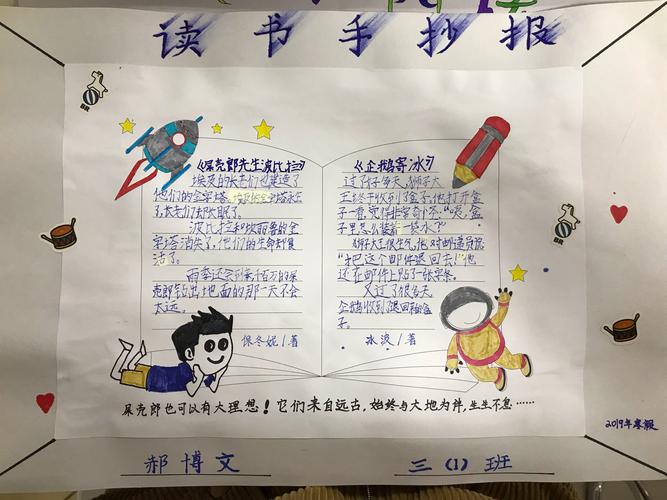 读书手抄报
《屎壳郎先生波比拉》
埃及的长老们也建造了
他们的金字塔。
了,长老们都欢呼了。
波比拉和坎丽鲁的金
字塔消失了,他们的生命却复
活了。
雨季还会到来,千百万的屎
壳郎钻出地面的那一天不会
太远。
保冬妮/著
《企鹅寄冰》
过了好多天,狮子大
王终于收到了盒子,他打开盒
子一看,觉得非常奇怪:“咦,盒
子里怎么装着一袋水?”
狮子大王很生气,他对邮递员说:
“把这个邮件退回去!”他
还在邮件上贴了一张字条。
又过了很多天,
企鹅收到了退回来的盒
子。
冰波/著
屎壳郎也可以有大理想!它们来自远古,始终与大地为伴,生生不息……
2019年寒假
郝博文
三(1)班